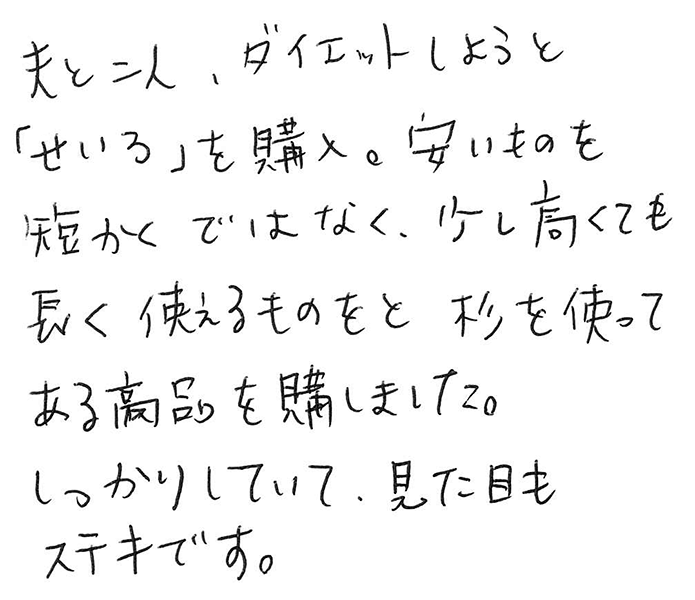 夫と二人、ダイエットしようと
「せいろ」を購入。安いものを
短かくではなく、少し高くても
長く使えるものをと杉を使って
ある商品を購しました。
しっかりしていて、見た目も
ステキです。